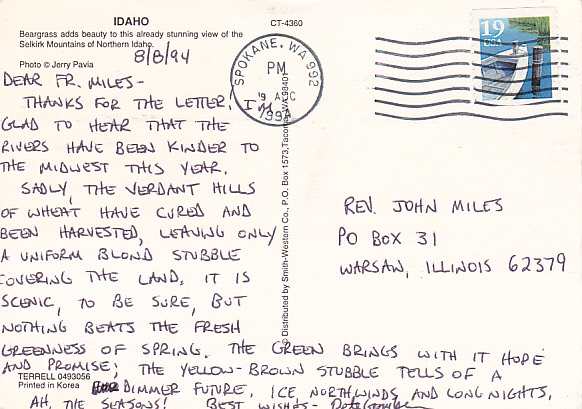 IDAHO
Beargrass adds beauty to this already stunning view of the
Selkirk Mountains of Northern Idaho.
Photo © Jerry Pavia
CT-4360
8/8/94
DEAR FR. MILES-
THANKS FOR THE LETTER! I'M
GLAD TO HEAR THAT THE
RIVERS HAVE BEEN KINDER TO
THE MIDWEST THIS YEAR.
SADLY, THE VERDANT HILLS
OF WHEAT HAVE CURED AND
BEEN HARVESTED, LEAVING ONLY
A UNIFORM BLOND STUBBLE
COVERING THE LAND. IT IS
SCENIC, TO BE SURE, BUT
NOTHING BEATS THE FRESH
GREENNESS OF SPRING. THE GREEN BRINGS WITH IT HOPE
AND PROMISE; THE YELLOW-BROWN STUBBLE TELLS OF A
DIMMER FUTURE, ICE NORTHWINDS AND LONG NIGHTS.
AH, THE SEASONS! BEST WISHES-
TERRELL 0493056
Printed in Korea
© Distributed by Smith-Western Co., P.O. Box 1573, Tacoma, WA 98401
SPOKANE, WA 992
PM
1994
19
USA
REV. JOHN MILES
PO BOX 31
WARSAW, ILLINOIS 62379